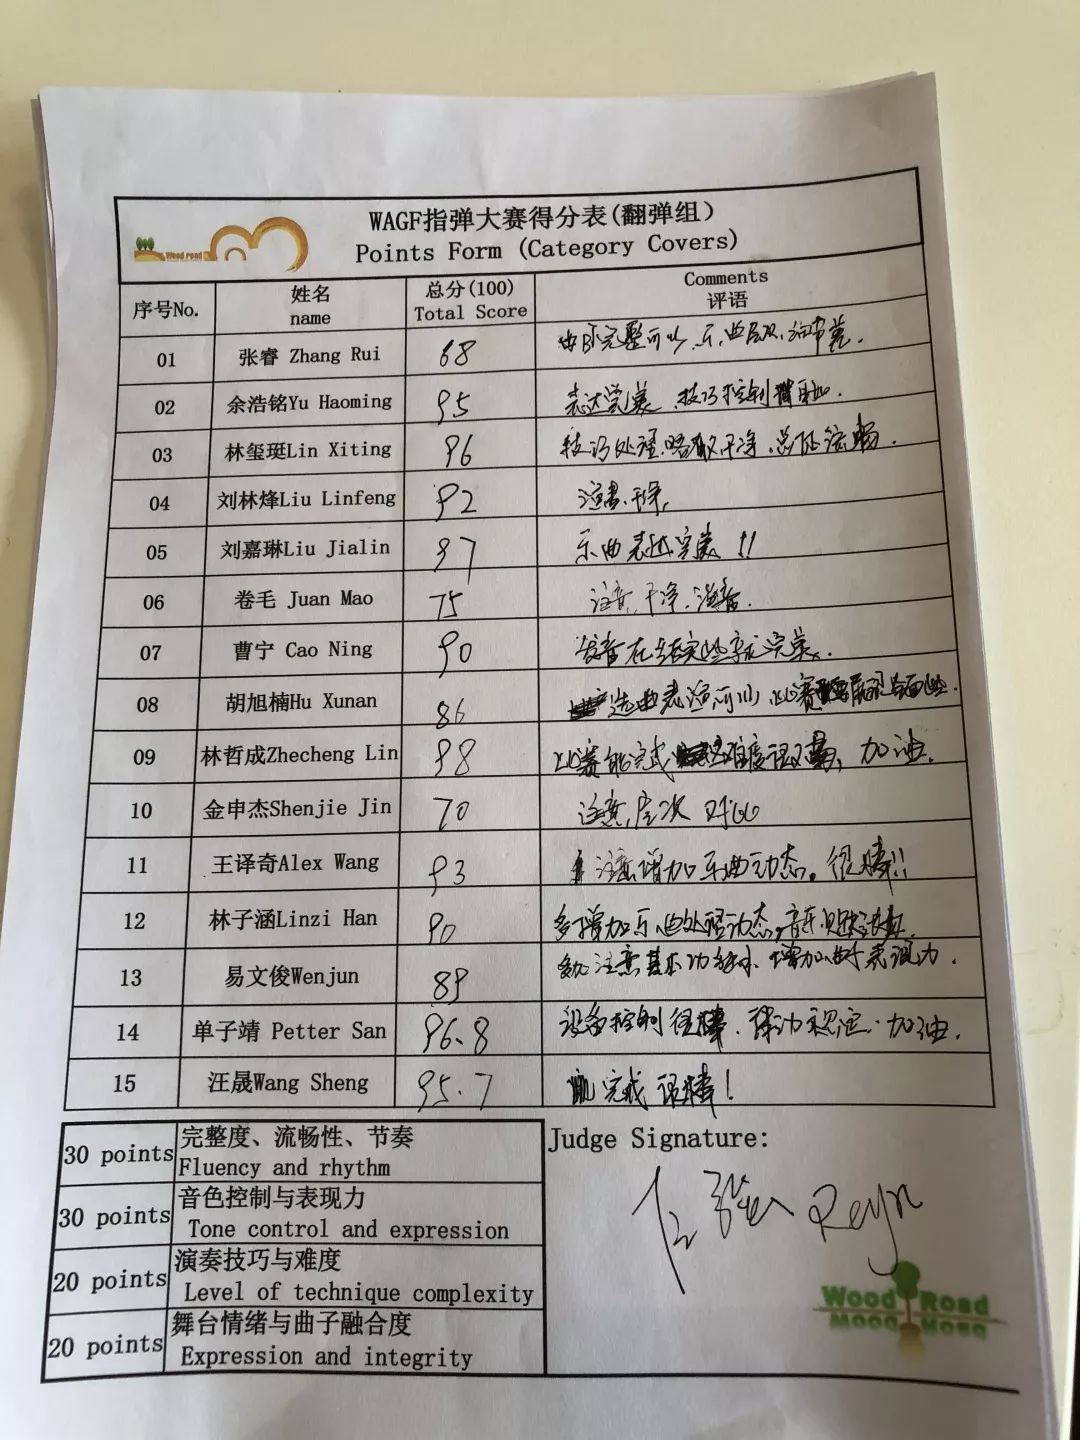 WAGF指弹大赛得分表(翻弹组)
Points Form (Category Covers)
Wood road
序号No. 姓名 name 总分(100) Total Score Comments 评语
01 张睿 Zhang Rui 68
02 余浩铭Yu Haoming 95 表达完美、技巧控制
03 林玺珽Lin Xiting 96 技巧处理 干净、总体流畅.
04 刘林烽Liu Linfeng 92
05 刘嘉琳Liu Jialin 97 乐曲表达完美!!
06 卷毛 Juan Mao 75 注意,干净.
07 曹宁 Cao Ning 90 发音在结实些就完美.
08 胡旭楠Hu Xunan 86 选曲表演可以,比赛
09 林哲成Zhecheng Lin 98 比赛能完成 难度 加油.
10 金申杰Shenjie Jin 70 注意,层次 对比
11 王译奇Alex Wang 93 注意增加乐曲动态。很棒!!
12 林子涵Linzi Han 90 多增加乐曲处理动态,音乐
13 易文俊Wenjun 89 多注意基本功 增加 表现力.
14 单子靖 Petter San 96.8 设备控制很棒、律动稳定.加油.
15 汪晟Wang Sheng 95.7 完成 很棒!
30 points 完整度、流畅性、节奏
Fluency and rhythm
30 points 音色控制与表现力
Tone control and expression
20 points 演奏技巧与难度
Level of technique complexity
20 points 舞台情绪与曲子融合度
Expression and integrity
Judge Signature:
Wood Road